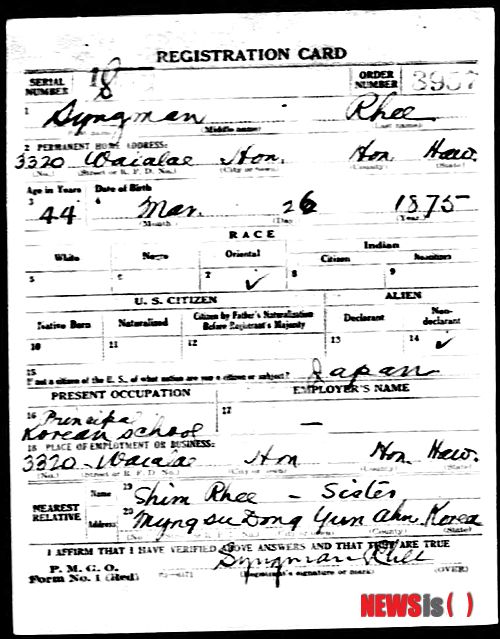 REGISTRATION CARD
SERIAL NUMBER 18 ORDER NUMBER 3957
1 Syngman Rhee
(Middle name) (Last name)
2 PERMANENT HOME ADDRESS:
3320 Waialae Hon. Hon. Haw.
(No.) (Street or R. F. D. No.) (City or town) (County) (State)
Age in Years Date of Birth
3 44 4 Mar. 26 1875
(Month) (Day) (Year)
RACE
White Negro Oriental Indian
Citizen Noncitizen
5 6 7 ✓ 8 9
U. S. CITIZEN ALIEN
Native Born Naturalized Citizen by Father's Naturalization Before Registrant's Majority Declarant Non-declarant
10 11 12 13 14 ✓
15
If not a citizen of the U. S., of what nation are you a citizen or subject? Japan
PRESENT OCCUPATION EMPLOYER'S NAME
16 Principal 17 —
Korean School
18 PLACE OF EMPLOYMENT OR BUSINESS:
3320 - Waialae Hon Hon Haw.
(No.) (City or town) (County) (State)
NEAREST RELATIVE Name 19 Shim Rhee - Sister
Address 20 Myng Su Dong Yun Ahn, Korea
(No.) (County) (State)
I AFFIRM THAT I HAVE VERIFIED ABOVE ANSWERS AND THAT THEY ARE TRUE
P. M. G. O.
Form No. 1 (Red) Syngman Rhee
(Registrant's signature or mark) (OVER)
NEWSis( )